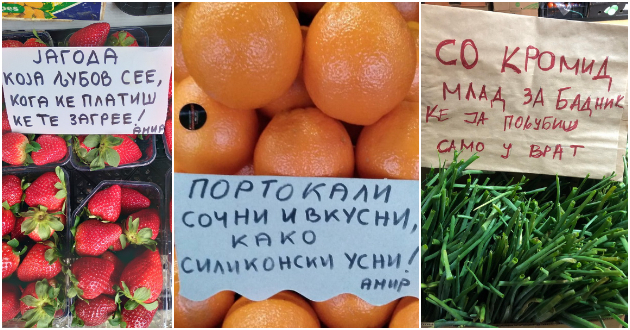 ЈАГОДА
КОЈА ЉУБОВ СЕЕ,
КОГА ЌЕ ПЛАТИШ
ЌЕ ТЕ ЗАГРЕЕ!
АМИР
ПОРТОКАЛИ
СОЧНИ И ВКУСНИ,
КАКО
СИЛИКОНСКИ УСНИ!
АМИР
СО КРОМИД
МЛАД ЗА БАДНИК
ЌЕ ЈА ПОЉУБИШ
САМО У ВРАТ